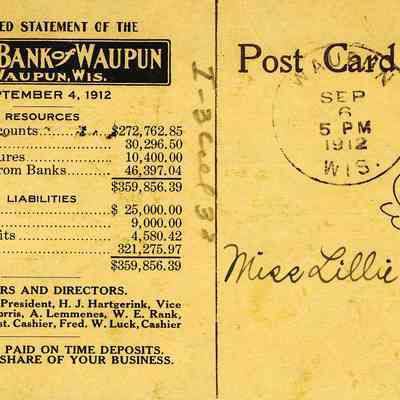 ED STATEMENT OF THE
BANK of WAUPUN
WAUPUN, WIS.
PTEMBER 4, 1912
RESOURCES
counts $272,762.85
30,296.50
ures 10,400.00
rom Banks 46,397.04
$359,856.39
LIABILITIES
$ 25,000.00
9,000.00
its 4,580.42
321,275.97
$359,856.39
RS AND DIRECTORS.
President, H. J. Hartgerink, Vice
orris, A. Lemmenes, W. E. Rank,
st. Cashier, Fred. W. Luck, Cashier
PAID ON TIME DEPOSITS.
SHARE OF YOUR BUSINESS.
Post Card
WAUPUN
SEP
6
5 PM
1912
WIS.
Miss Lillie